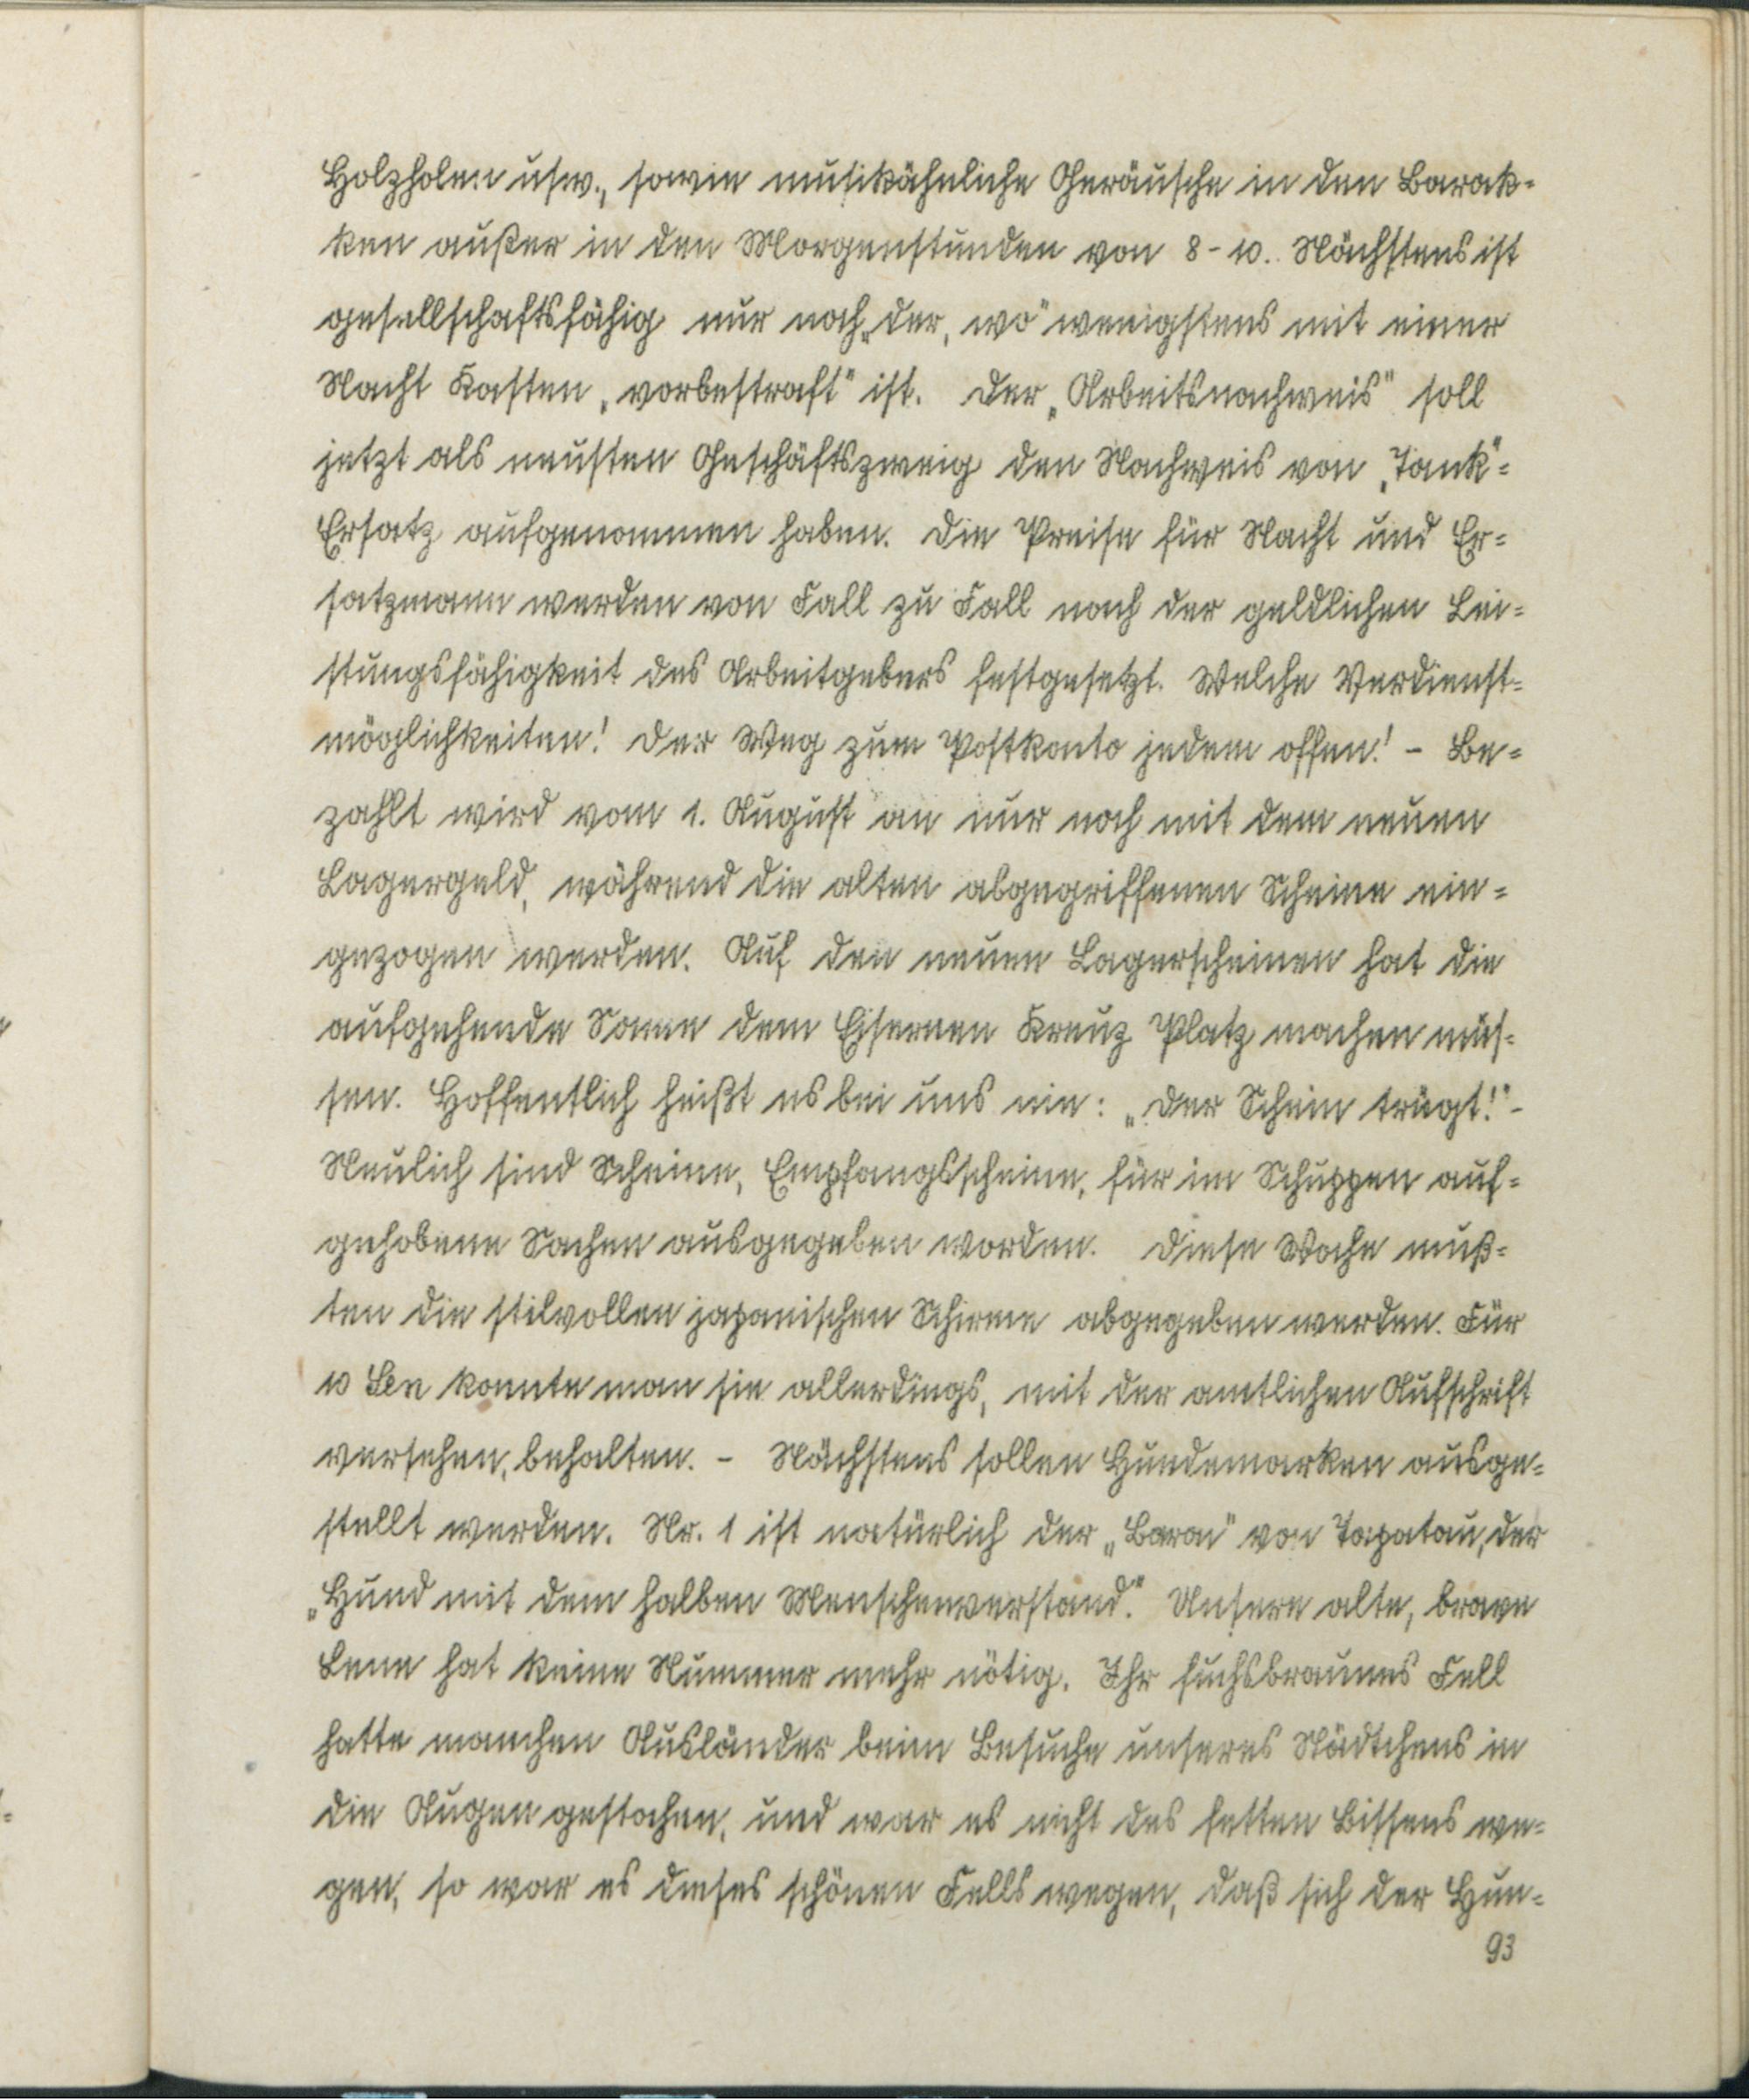 Holzholen usw., sowie musikähnliche Geräusche in den Barak-
ken außer in den Morgenstunden von 8-10. Nächstens ist
gesellschaftsfähig nur noch „der, wo" wenigstens mit einer
Nacht Kasten „vorbestraft" ist. Der „Arbeitsnachweis" soll
jetzt als neusten Geschäftszweig den Nachweis von „Tank"-
Ersatz aufgenommen haben. Die Preise für Nacht und Er-
satzmann werden von Fall zu Fall nach der geldlichen Lei-
stungsfähigkeit des Arbeitgebers festgesetzt. Welche Verdienst-
möglichkeiten! Der Weg zum Postkonto jedem offen! - Be-
zahlt wird vom 1. August an nur noch mit dem neuen
Lagergeld, während die alten abgegriffenen Scheine ein-
gezogen werden. Auf den neuen Lagerscheinen hat die
aufgehende Sonne dem Eisernen Kreuz Platz machen müs-
sen. Hoffentlich heißt es bei uns nie: „Der Schein trügt!" -
Neulich sind Scheine, Empfangsscheine, für im Schuppen auf-
gehobene Sachen ausgegeben worden. Diese Woche muß-
ten die stilvollen japanischen Schirme abgegeben werden. Für
10 Sen konnte man sie allerdings, mit der amtlichen Aufschrift
versehen, behalten. - Nächstens sollen Hundemarken ausge-
stellt werden. Nr. 1 ist natürlich der „Baron" von Tapatau, der
„Hund mit dem halben Menschenverstand." Unsere alte, brave
Lene hat keine Nummer mehr nötig. Ihr fuchsbraunes Fell
hatte manchen Ausländer beim Besuche unseres Städtchens in
die Augen gestochen, und war es nicht des fetten Bissens we-
gen, so war es dieses schönen Fells wegen, daß sich der Hun-
93